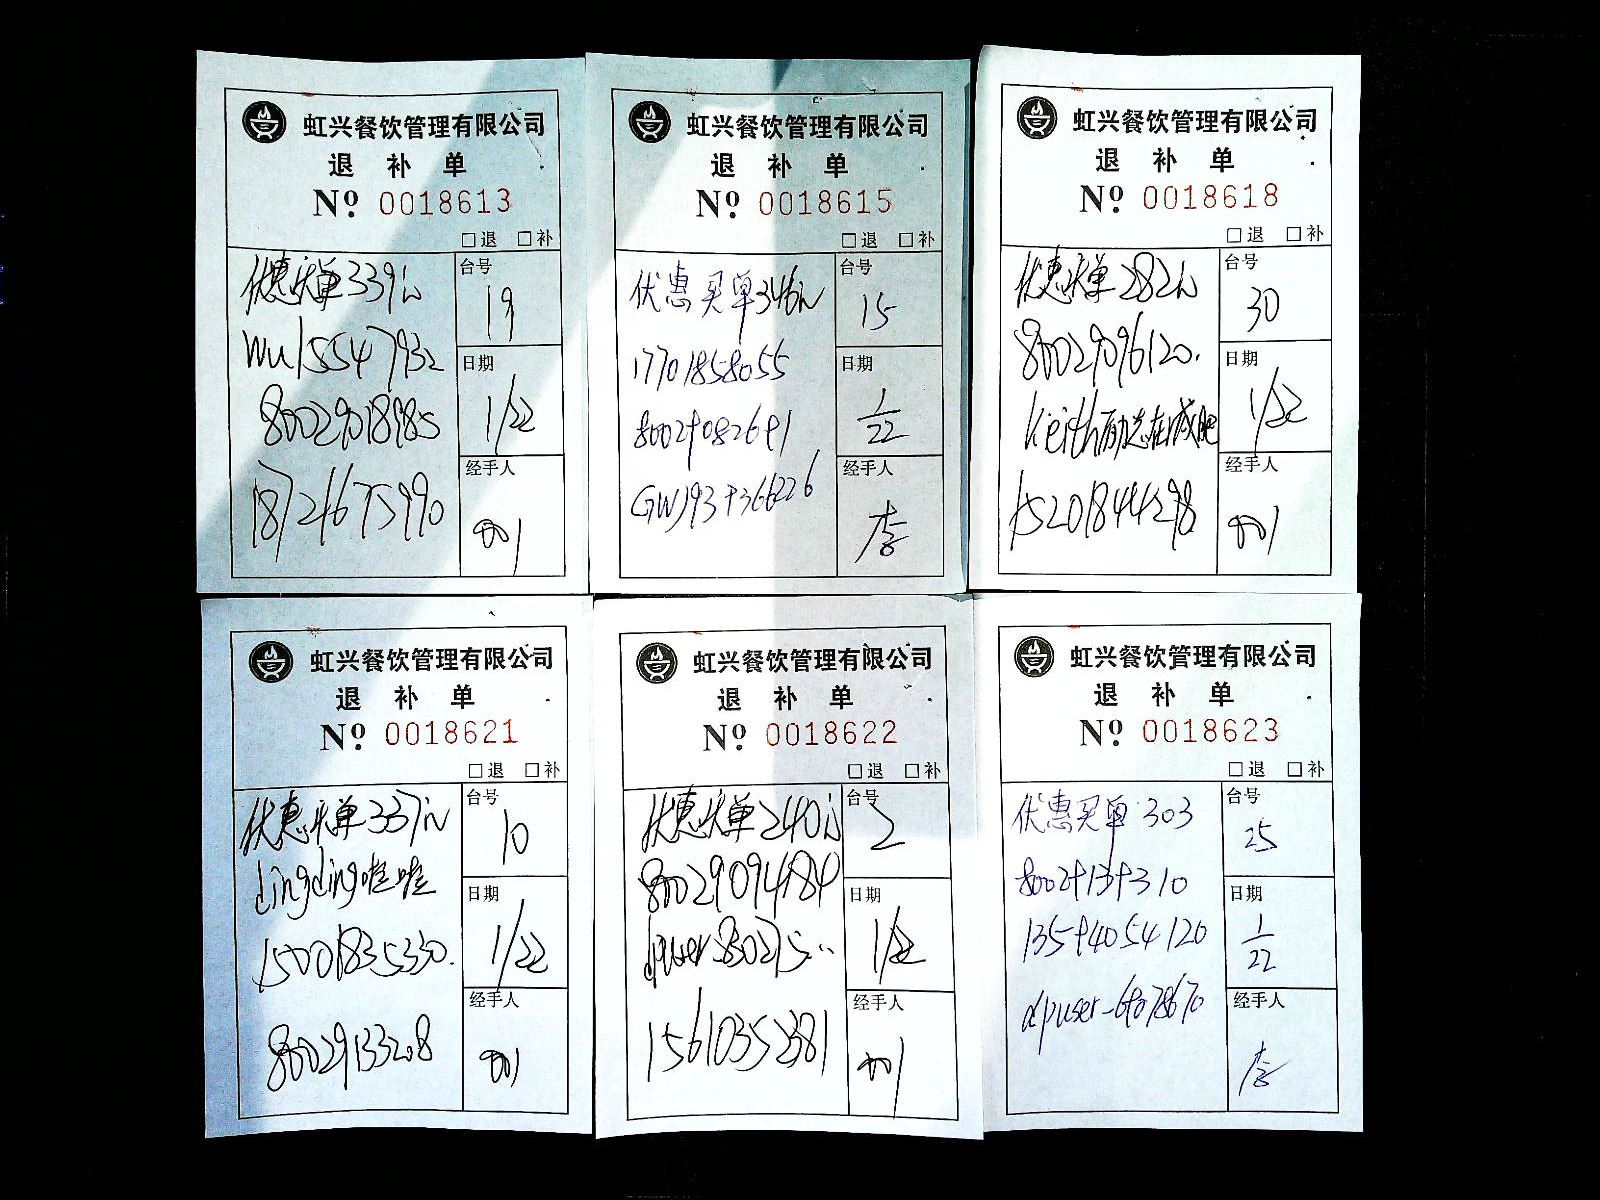 虹兴餐饮管理有限公司
退 补 单
Nº 0018613
□退 □补
优惠买单339
台号
19
wu15547932
日期
1/22
80029018985
经手人
18721675990
001
虹兴餐饮管理有限公司
退 补 单
Nº 0018615
□退 □补
优惠买单346
台号
15
17701858055
日期
1/22
80029082691
经手人
GWJ939366226
李
虹兴餐饮管理有限公司
退 补 单
Nº 0018618
□退 □补
优惠买单282
台号
30
80029096120.
日期
1/22
Keith励志在减肥
经手人
15201844298
001
虹兴餐饮管理有限公司
退 补 单
Nº 0018621
□退 □补
优惠买单337
台号
10
dingding啦啦
日期
1/22
15001835330.
经手人
80029133208
001
虹兴餐饮管理有限公司
退 补 单
Nº 0018622
□退 □补
优惠买单240
台号
2
80029094984
日期
1/22
dpuser-80275..
经手人
15610352381
001
虹兴餐饮管理有限公司
退 补 单
Nº 0018623
□退 □补
优惠买单303
台号
25
80029139310
日期
1/22
13594054120
经手人
dpuser-69078670
李